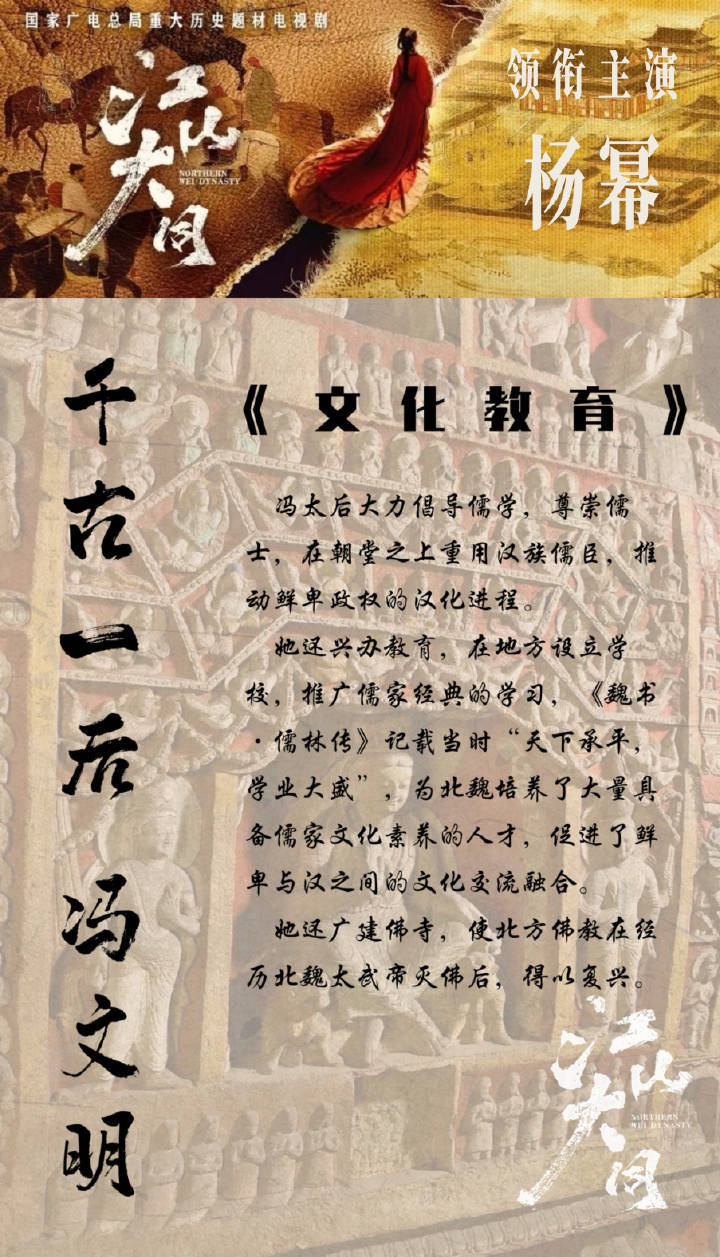 国家广电总局重大历史题材电视剧
江山大同
NORTHERN
WEI DYNASTY
领衔主演
杨幂
千古一后 冯文明
《文化教育》
冯太后大力倡导儒学，尊崇儒
士，在朝堂之上重用汉族儒臣，推
动鲜卑政权的汉化进程。
她还兴办教育，在地方设立学
校，推广儒家经典的学习，《魏书
·儒林传》记载当时“天下承平，
学业大盛”，为北魏培养了大量具
备儒家文化素养的人才，促进了鲜
卑与汉之间的文化交流融合。
她还广建佛寺，使北方佛教在经
历北魏太武帝灭佛后，得以复兴。
江山大同
NORTHERN
WEI DYNASTY